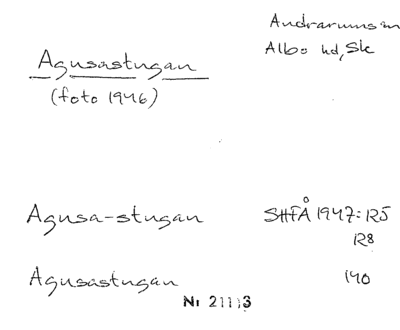 Andrarums sn
Albo hd, Sk
Agusastugan
(foto 1946)
Agusa-stugan SHFÅ 1947: 125
128
Agusastugan 140
Nr 21113